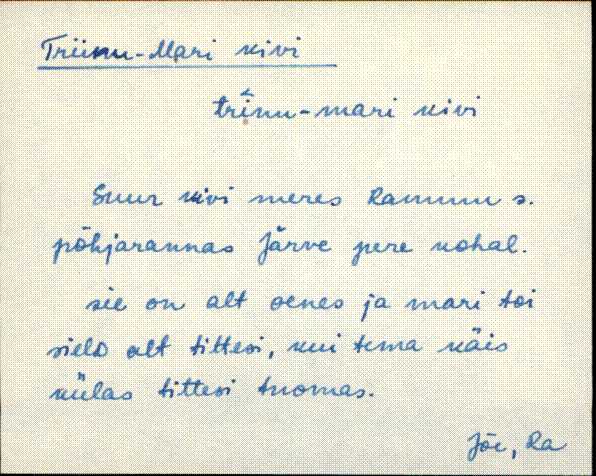 Triinu-Mari kivi
trînu-mari kivi
Suur kivi meres Rammu s.
põhjarannas Järve pere kohal.
sie on alt oenes ja mari toi
sield alt tittesi, kui tema käis
külas tittesi tuomas.
Jõe, Ra